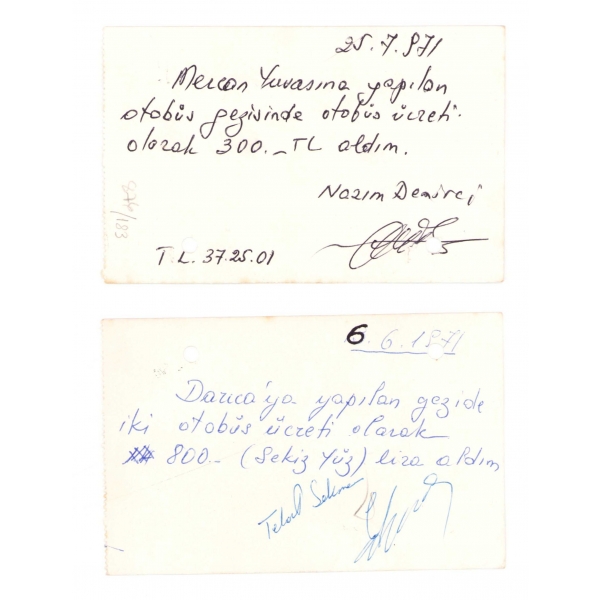 25.7.971
Mercan Yuvasına yapılan
otobüs gezisinde otobüs ücreti
olarak 300.- TL aldım.
Nazım Demirci
T.L. 37.25.01
6.6.1971
Darıca'ya yapılan gezide
iki otobüs ücreti olarak
800.- (Sekiz Yüz) lira aldım